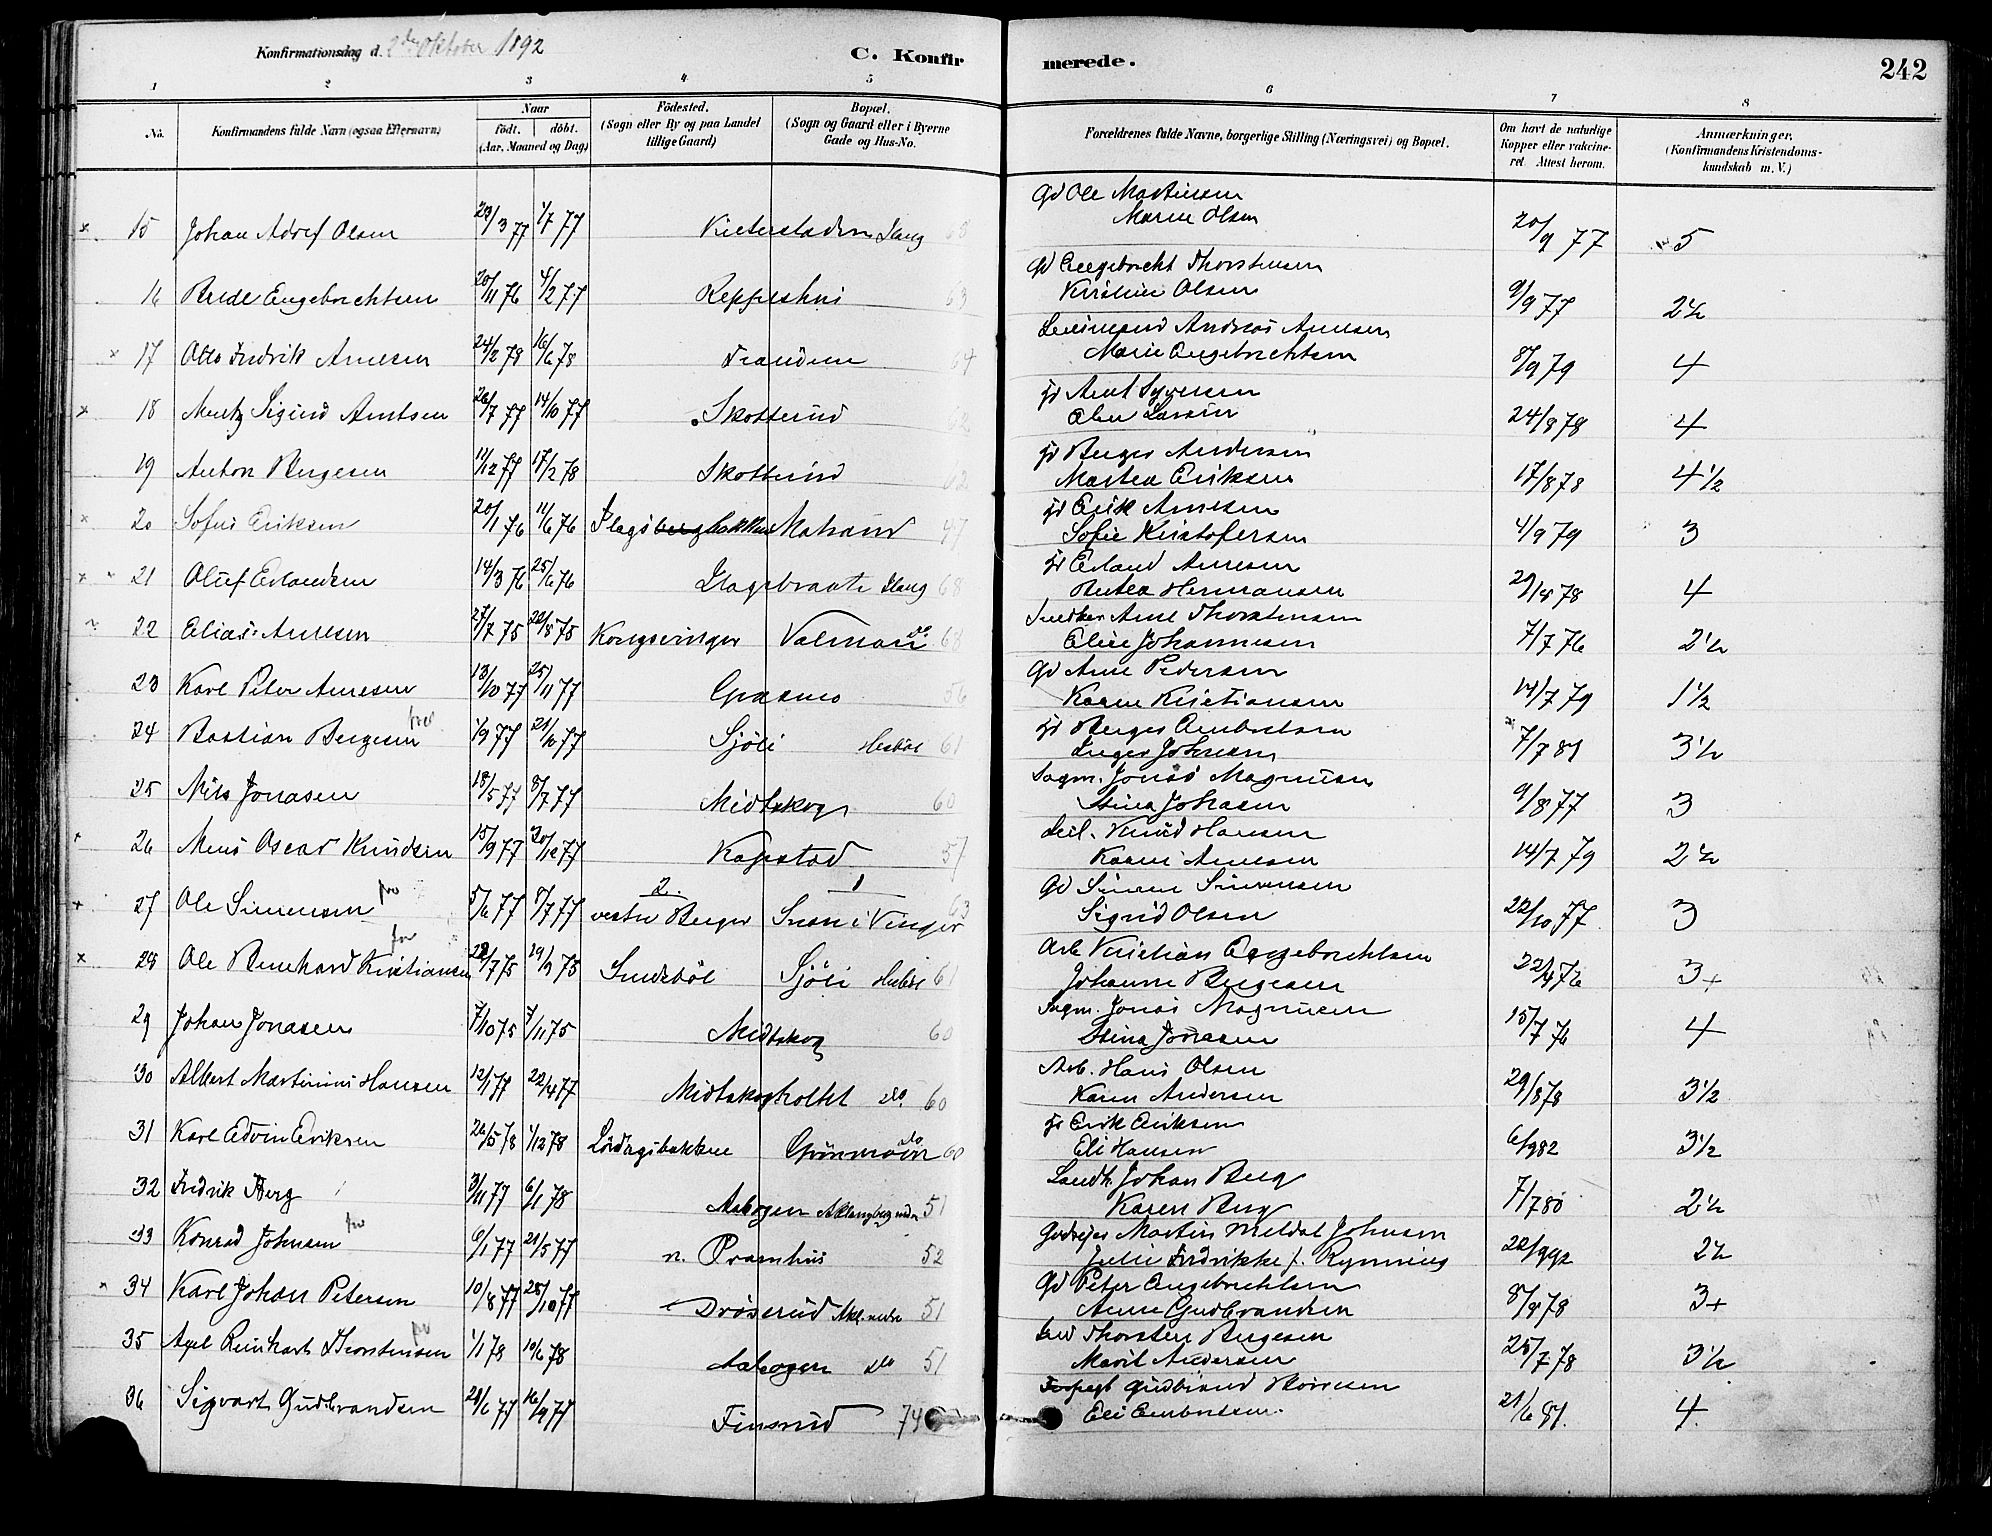 Konfirmationsdag d. 2de Oktober 1892
C. Konfirmerede.
242
1 2 3 4 5 6 7 8
No.
Konfirmandens fulde Navn (ogsaa Efternavn)
Naar
födt. döbt.
(Aar, Maaned og Dag)
Födested.
(Sogn eller By og paa Landet
tillige Gaard)
Bopæl.
(Sogn og Gaard eller i Byerne
Gade og Hus-No.
Forældrenes fulde Navne, borgerlige Stilling (Næringsvei) og Bopæl.
Om havt de naturlige
Kopper eller vakcine-
ret. Attest herom.
Anmærkninger.
(Konfirmandens Kristendoms-
kundskab m. V.)
Gd Ole Martinsen
15 Johan Adolf Olsen 1/7 77 Haug 68 Maren Olsen 20/9 77 5
Gd Engebrecht Thorstensen
16 Brede Engebrechtsen 20/11 76 4/2 77 63 Kirstine Olsen 9/9 77 2½
Andreas Arnesen
17 Otto Fredrik Arnesen 24/2 78 16/6 78 64 Marie Engebrechtsen 8/9 79 4
Arnt Syversen
18 Sigurd Arntsen 26/7 77 14/10 77 Skotterud 62 Larsen 24/8 78 4
Berger Andersen
19 Anton Bergesen 17/2 78 Skotterud 62 Martea Eriksen 17/8 78 4½
Erik Arnesen
20 Sofie Eriksen 20/1 76 11/6 76 Matrand 47 Sofie Kristofersen 4/9 79 3
Erland Arnesen
21 Oluf Erlandsen 14/3 76 25/6 76 Haug 68 Hermansen 4
Snedker Arne Thorstensen
22 Elias Arnesen 27/7 75 22/8 75 Kongsvinger Valmoen do 68 Eline Johannesen 7/7 76 2½
Gd Arne Pedersen
23 Karl Peter Arnesen 13/10 77 25/11 77 Grasmo 56 Karen Kristiansen 14/7 79 1½
Berger Embretsen
24 Bastian Bergesen 1/9 77 21/10 77 Sjöli 61 Inger Johnsen 7/7 81 3½
Sagm. Jonas Magnusen
25 Nils Jonasen 18/5 77 8/7 77 Midtskog 60 Stina Johnsen 9/8 77 3
Knud Hansen
26 Oscar Knudsen 15/9 77 30/12 77 Kapstad 57 Karen Arnesen 14/7 79 2½
2. 1
Gd Simen Simensen
27 Ole Simensen 5/6 77 8/7 77 vestre Berger i Vinger 63 Sigrid Olsen 22/10 77 3
Arb Kristian Engebrechtsen
28 Ole Bernhard Kristiansen 19/9 75 Sjöli 61 Johanne Bergesen 3+
Sagm. Jonas Magnusen
29 Johan Jonasen 7/10 75 7/11 75 Midtskog 60 Stina Jonasen 15/7 76 4
Arb. Hans Olsen
30 Albert Martinius Hansen 12/1 77 22/4 77 Midtskogholtet do 60 Karen Andersen 29/8 78 3½
Erik Eriksen
31 Karl Edvin Eriksen 26/5 78 1/12 78 Lördagsbakken Grönmoen do 60 Eli Hansen 6/9 82 3½
Landh. Johan Berg
32 Fredrik Berg 3/11 77 6/1 78 Aabogen 51 Karen Berg 7/7 80 2½
Martin Meldal Johnsen
33 Konrad Johnsen 6/1 77 21/5 77 n. Pramhus 52 Julie Fredrikke f. Rynning 22/9 92 2½
Gd Peter Engebrechtsen
34 Karl Johan Petersen 10/8 77 28/10 77 Dröserud 51 Anne Gudbrandsen 3+
Thorsten Bergesen
35 Axel Reinhart Thorstensen 1/1 78 10/6 78 Aabogen do 51 Marit Andersen 25/7 78 3½
Gudbrand
36 Sigvart Gudbrandsen 16/9 77 Finsrud 74 Eli Embretsen. 21/6 81. 4.